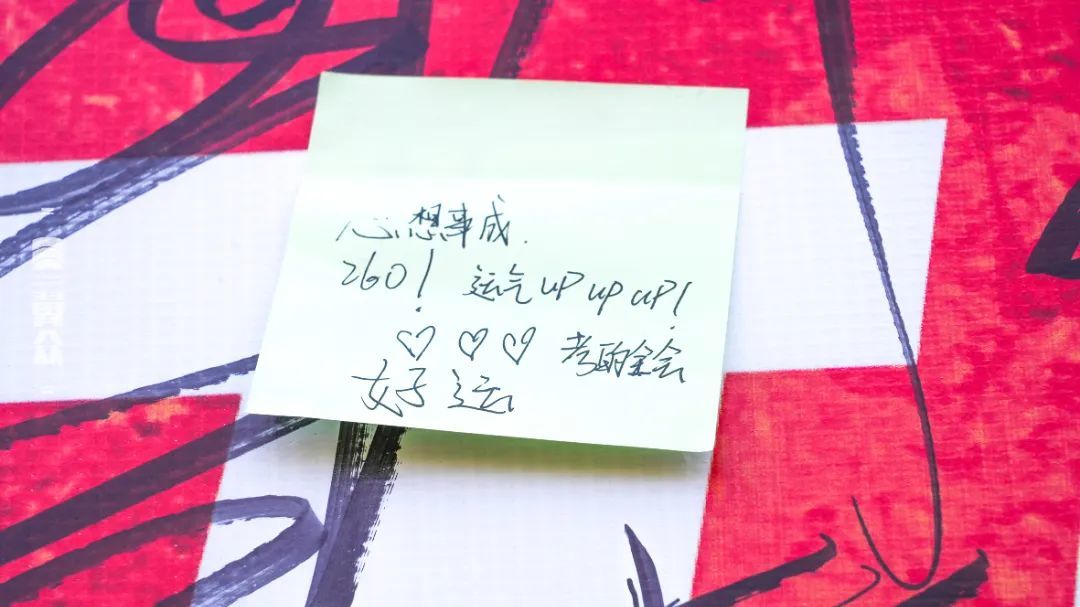 心想事成.
260！ 运气 UP UP UP！
♡ ♡ ♡ 考的全会
好运